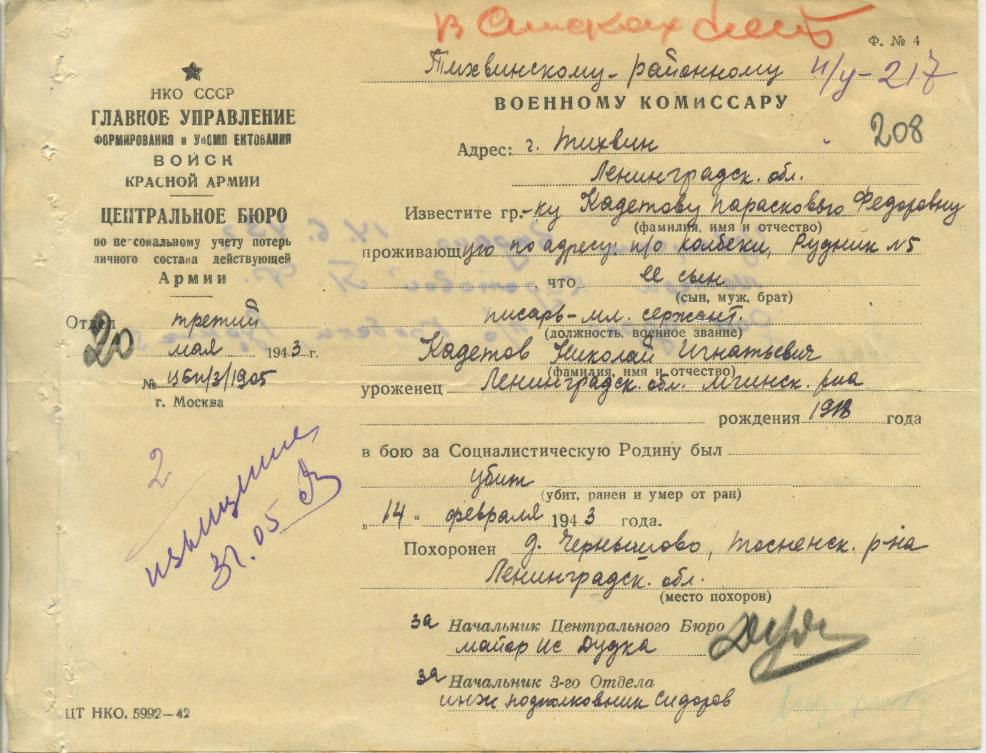 в списках
Ф. № 4
Тихвинскому районному
н/у-217
ВОЕННОМУ КОМИССАРУ
208
Адрес: г. Тихвин
Ленинградск. обл.
Известите гр.-ку Кадетову Парасковью Федоровну
(фамилия, имя и отчество)
проживающую по адресу: п/о Колбеки, Рудник №5
, что ее сын
(сын, муж, брат)
писарь-мл. сержант.
(должность, военное звание)
Кадетов Николай Игнатьевич
(фамилия, имя и отчество)
уроженец Ленинградск. обл. Мгинск. р-на
рождения 1918 года
в бою за Социалистическую Родину был
убит
(убит, ранен и умер от ран)
„14“ февраля 1943 года.
Похоронен д. Чернышово, Тосненск. р-на
Ленинградск. обл.
(место похорон)
за Начальник Центрального Бюро
майор ис Дудка
за Начальник 3-го Отдела
инж подполковник Сидоров
НКО СССР
ГЛАВНОЕ УПРАВЛЕНИЕ
ФОРМИРОВАНИЯ И УКОМПЛЕКТОВАНИЯ
ВОЙСК
КРАСНОЙ АРМИИ
ЦЕНТРАЛЬНОЕ БЮРО
по персональному учету потерь
личного состава действующей
Армии
Отдел третий
20 мая 1943 г.
№ цбп/3/1905
г. Москва
2
извещение
31.05
ЦТ НКО. 5992—42